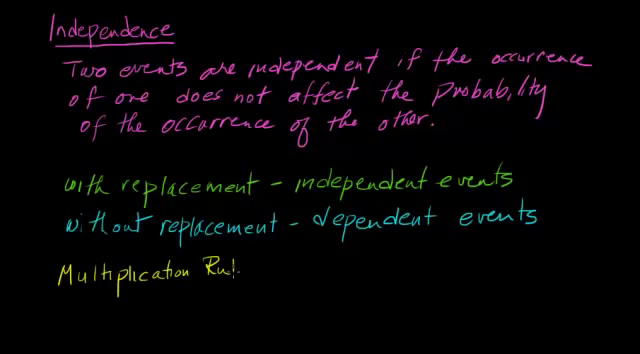 Independence
Two events are independent if the occurrence
of one does not affect the Probability
of the occurrence of the other.
with replacement - independent events
without replacement - dependent events
Multiplication Rul